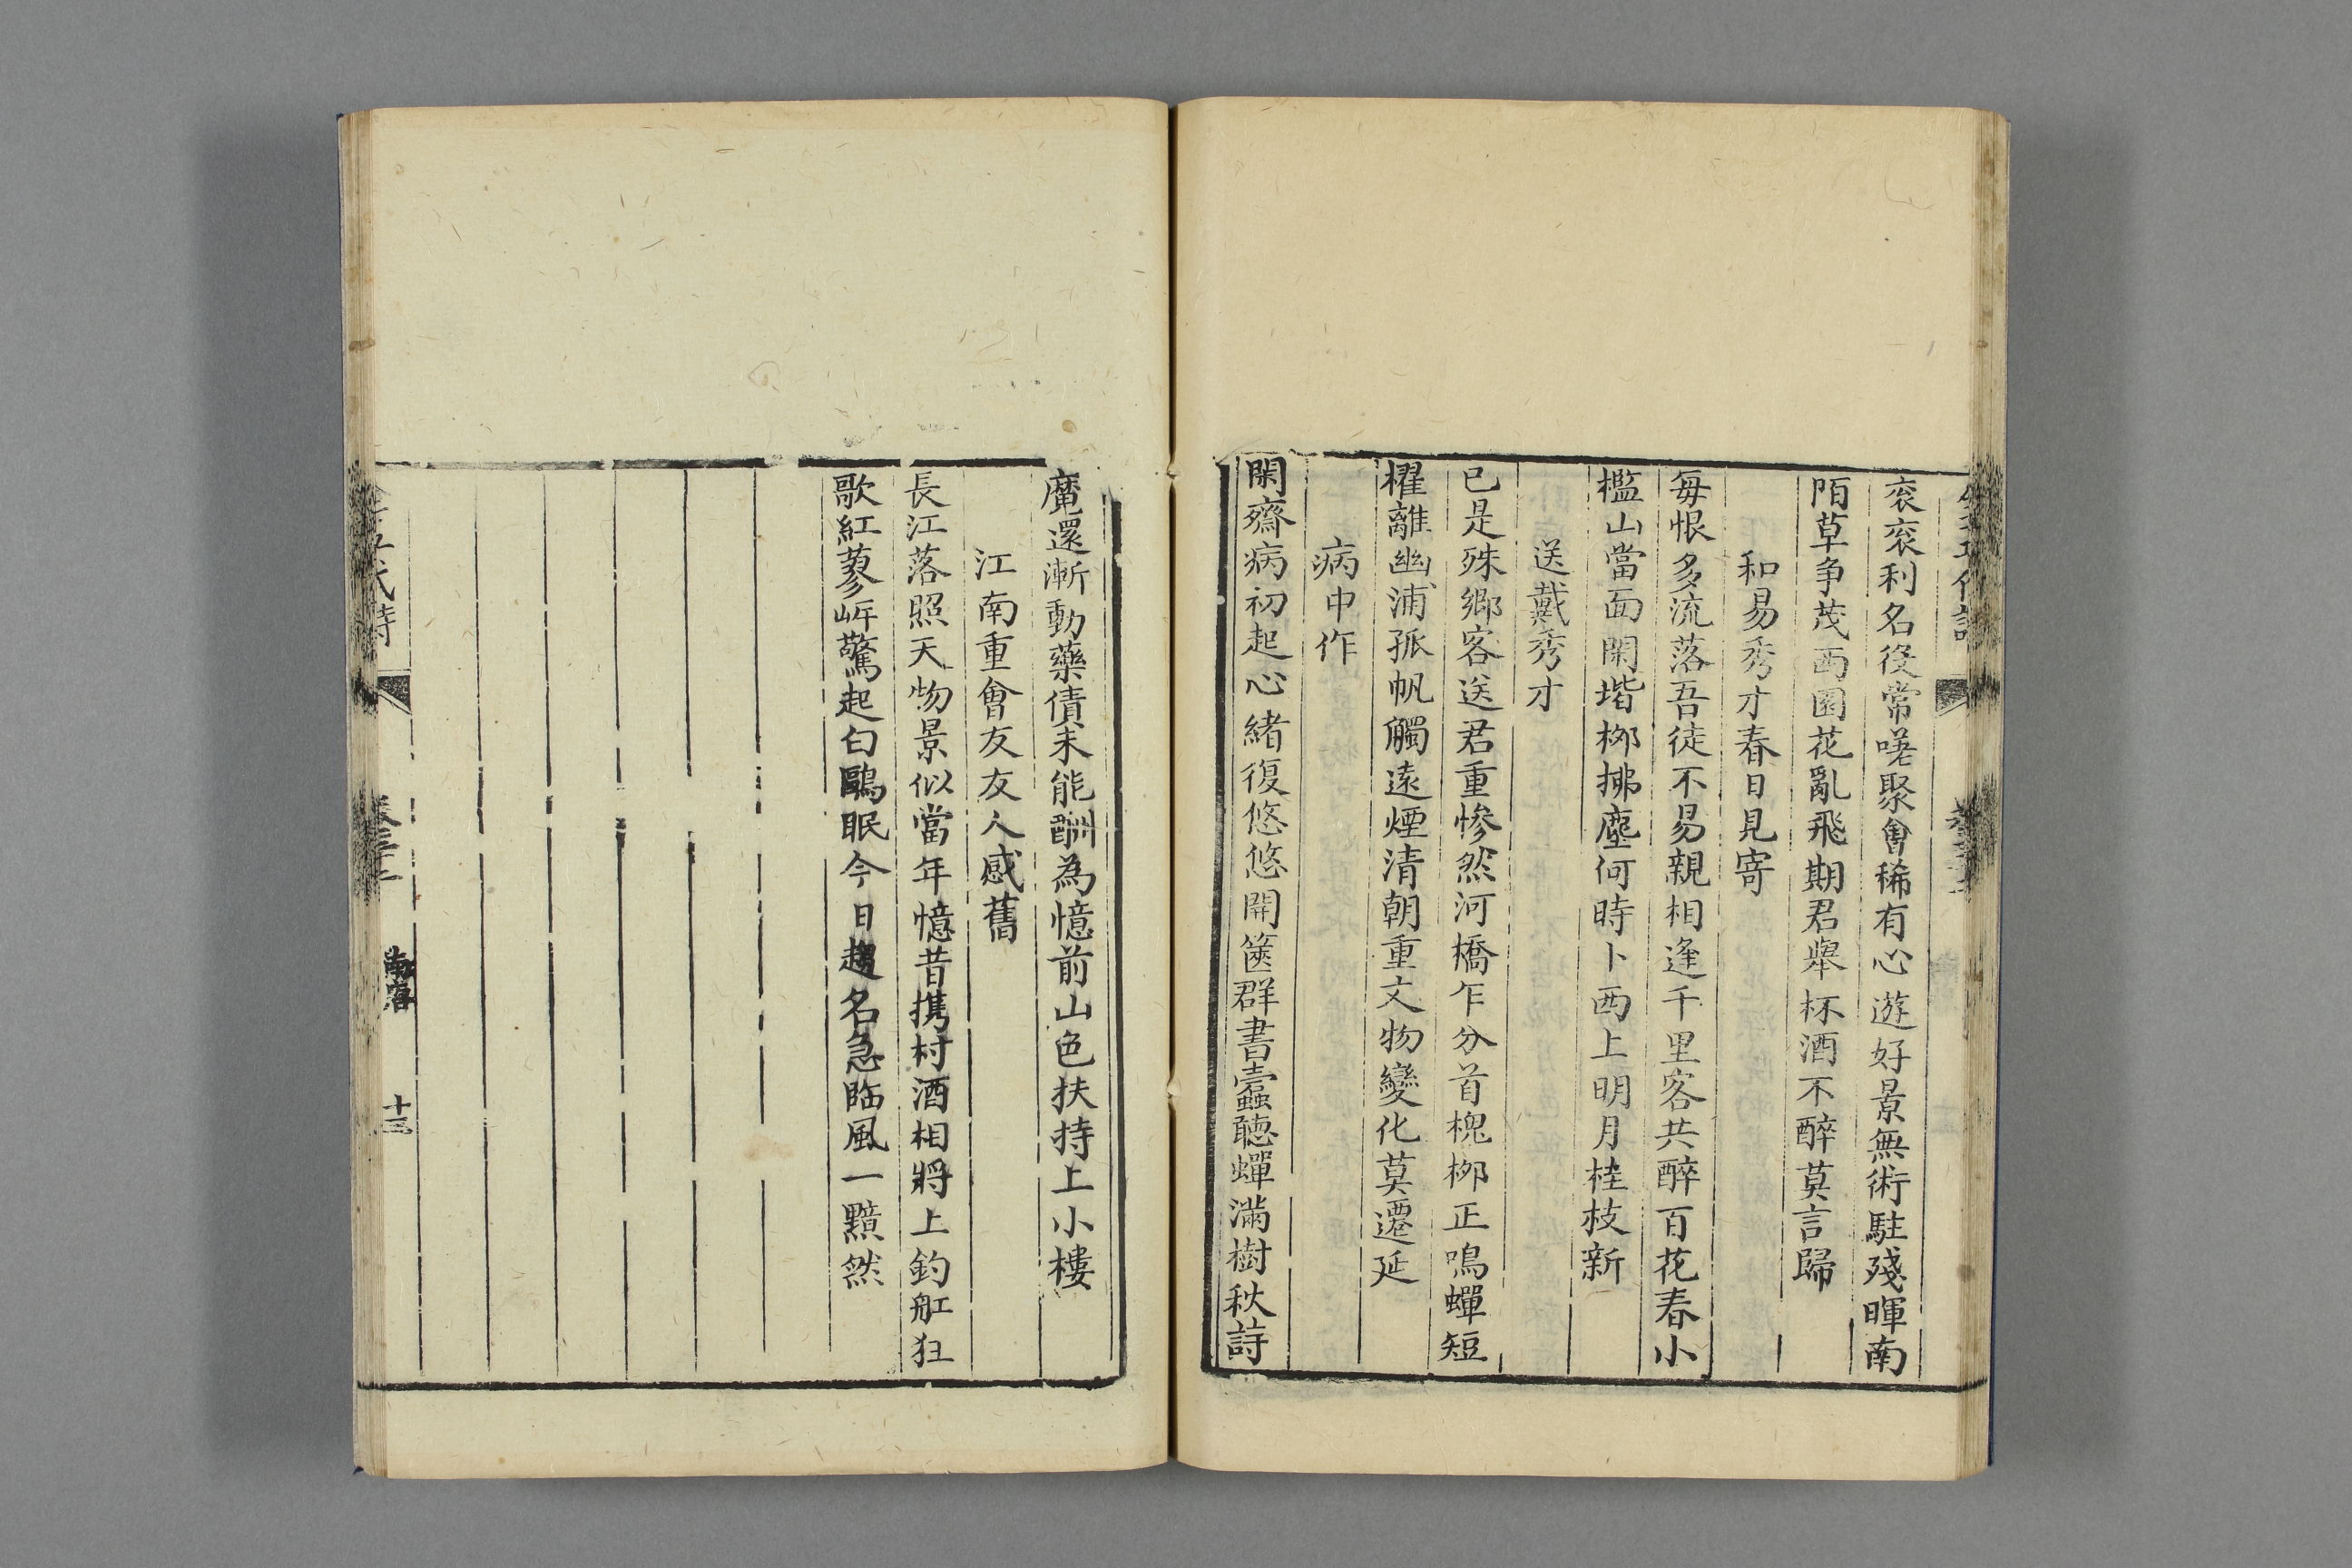 衮衮利名役常嗟聚會稀有心遊好景無術駐殘暉南
陌草争茂西園花亂飛期君舉杯酒不醉莫言歸
和易秀才春日見寄
每恨多流落吾徒不易親相逢千里客共醉百花春小
檻山當面閑堦桞拂塵何時卜西上明月桂枝新
送戴秀才
已是殊鄉客送君重惨然河橋乍分首槐桞正鳴蟬短
櫂離幽浦孤帆觸遠煙清朝重文物變化莫遷延
病中作
閑齋病初起心緒復悠悠開篋群書蠹聴蟬滿樹秋詩
魔還漸動藥債未能酬為憶前山色扶持上小樓
江南重會友友人感舊
長江落照天物景似當年憶昔携村酒相將上釣舡狂
歌紅蓼岸驚起白鷗眠今日趨名急臨風一黯然
十三